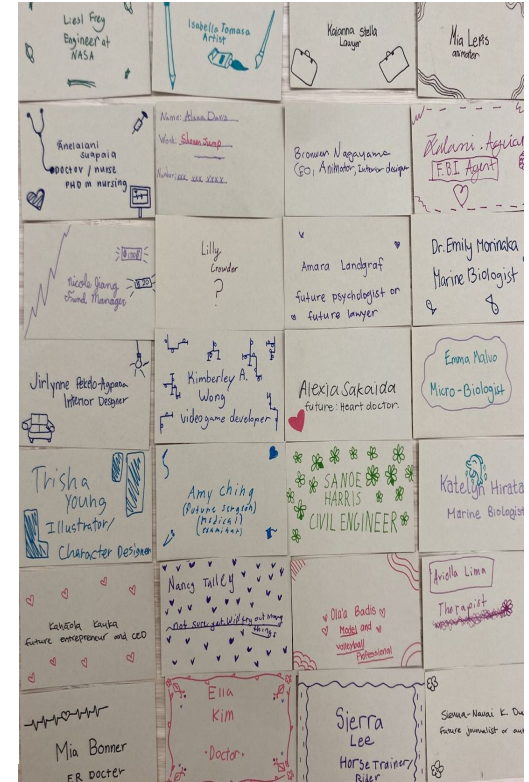 Liesl Frey
Engineer at
NASA
Isabella Tomasa
Artist
Kaianna Stella
Lawyer
Mia Leps
animator
Anelalani
Doctor / nurse
PHD in nursing
Name: Alana Davis
Work: Shonen Jump
Number: xxx xxx xxxx
Bronwen Nagayama
CEO, Animator, Interior designer
F.B.I Agent
Nicole Jiang
Fund Manager
$1000
$20
Lilly
Crowder
?
Amara Landgraf
future psychologist or
future lawyer
Dr. Emily Morinaka
Marine Biologist
Jirlynne Pekelo-Agpaoa
Interior Designer
Kimberley A.
Wong
Videogame developer
Alexia Sakaida
future: Heart doctor.
Emma Maluo
Micro-Biologist
Trisha
Young
Illustrator/
Character Designer
Amy Ching
(future surgeon)
(medical)
(examiner)
SANOE
HARRIS
CIVIL ENGINEER
Katelyn Hirata
Marine Biologist
Kauka
future entrepreneur and CEO
Nancy Talley
not sure yet. Will try out many
things
Ola'a Badis
Model and
volleyball
Professional
Ariella Lima
Therapist
Mia Bonner
ER Docter
Ella
Kim
Doctor
Sierra
Lee
Horse Trainer/
Rider
Future journalist or